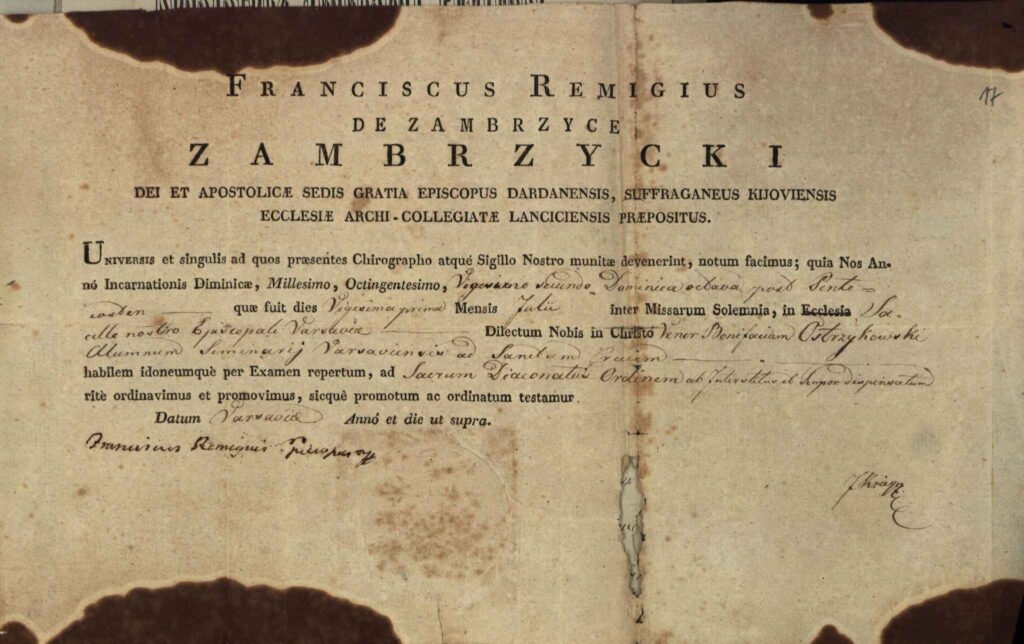 17
FRANCISCUS REMIGIUS
DE ZAMBRZYCE
ZAMBRZYCKI
DEI ET APOSTOLICÆ SEDIS GRATIA EPISCOPUS DARDANENSIS, SUFFRAGANEUS KIJOVIENSIS
ECCLESIÆ ARCHI-COLLEGIATÆ LANCICIENSIS PRÆPOSITUS.
UNIVERSIS et singulis ad quos præsentes Chirographo atqué Sigillo Nostro munitæ devenerint, notum facimus; quia Nos An-
nó Incarnationis Diminicæ, Millesimo, Octingentesimo, Vigesimo secundo Dominica octava post Pente=
costen quæ fuit dies Vigesima prima Mensis Julii inter Missarum Solemnia, in Ecclesia Sa-
cello nostro Episcopali Varsaviæ Dilectum Nobis in Christo Vener Bonifacium Ostrzykowski
Alumnum Seminarij Varsaviensis ad Sanctam Crucem
habilem idoneumquè per Examen repertum, ad Sacrum Diaconatus Ordinem ab Interstitiis et dispensatum
ritè ordinavimus et promovimus, sicquè promotum ac ordinatum testamur.
Datum Varsaviæ Annó et die ut supra.
Franciscus Remigius Episcopus